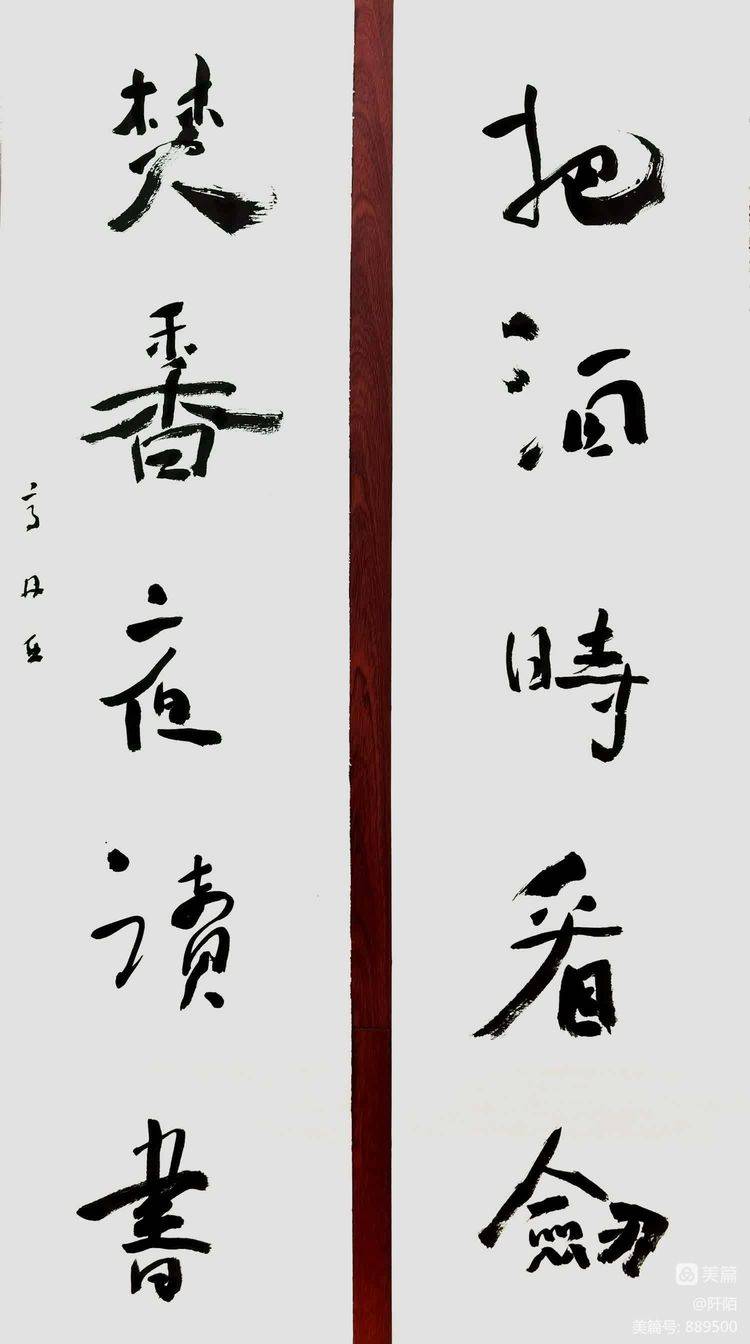 把酒時看劒
焚香夜讀書
高丹
美篇
@阡陌
美篇号: 889500